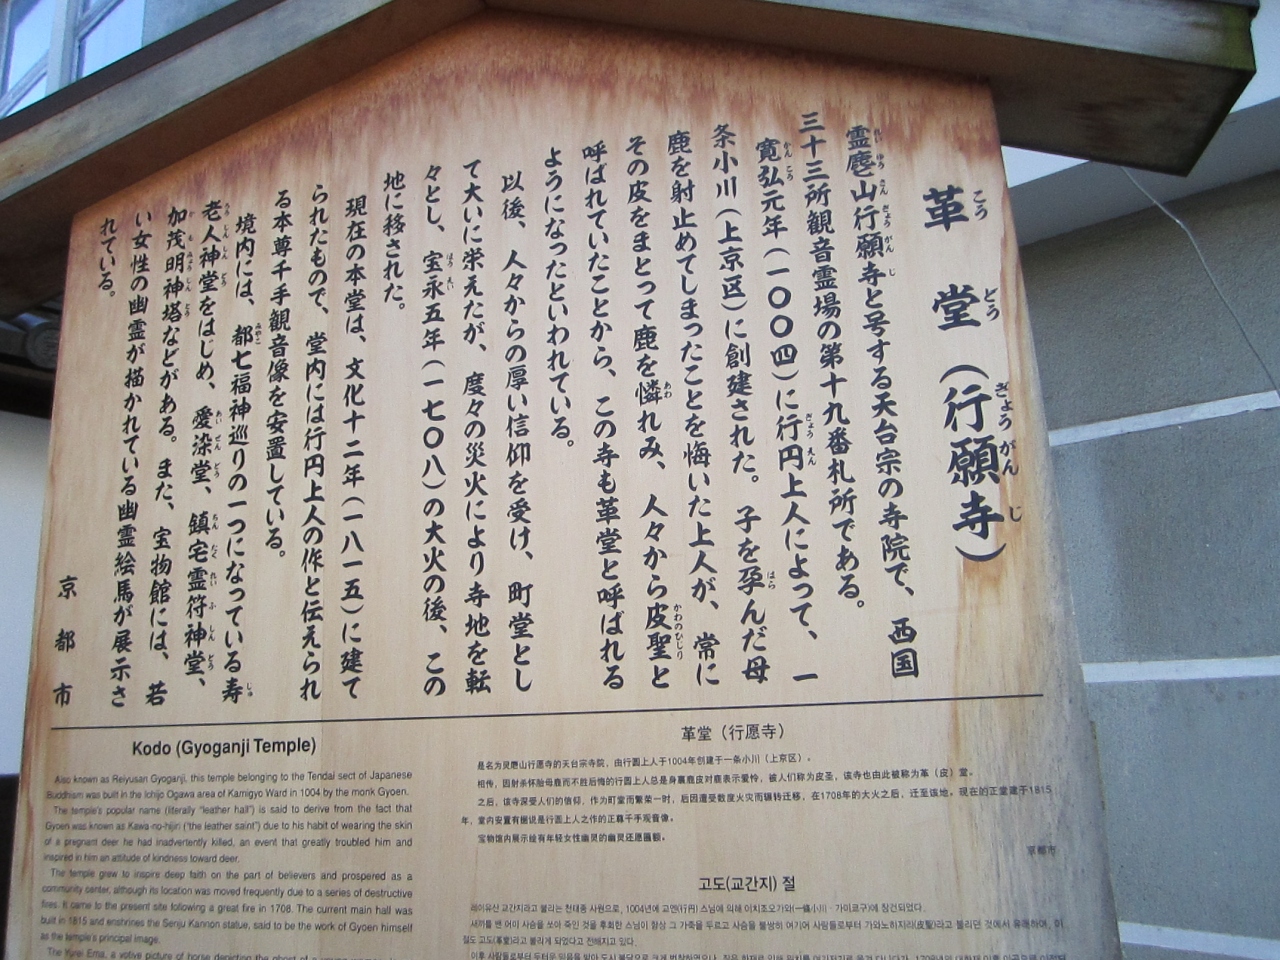 革堂（行願寺）
こうどう ぎょうがんじ
霊麀山行願寺と号する天台宗の寺院で、西国
三十三所観音霊場の第十九番札所である。
寛弘元年（一〇〇四）に行円上人によって、一
条小川（上京区）に創建された。子を孕んだ母
鹿を射止めてしまったことを悔いた上人が、常に
その皮をまとって鹿を憐れみ、人々から皮聖と
呼ばれていたことから、この寺も革堂と呼ばれる
ようになったといわれている。
以後、人々からの厚い信仰を受け、町堂とし
て大いに栄えたが、度々の災火により寺地を転
々とし、宝永五年（一七〇八）の大火の後、この
地に移された。
現在の本堂は、文化十二年（一八一五）に建て
られたもので、堂内には行円上人の作と伝えられ
る本尊千手観音像を安置している。
境内には、都七福神巡りの一つになっている寿
老人神堂をはじめ、愛染堂、鎮宅霊符神堂、
加茂明神塔などがある。また、宝物館には、若
い女性の幽霊が描かれている幽霊絵馬が展示さ
れている。
京都市
Kodo (Gyoganji Temple)
Also known as Reiyusan Gyoganji, this temple belonging to the Tendai sect of Japanese
Buddhism was built in the Ichijo Ogawa area of Kamigyo Ward in 1004 by the monk Gyoen.
The temple's popular name (literally "leather hall") is said to derive from the fact that
Gyoen was known as Kawa-no-hijiri ("the leather saint") due to his habit of wearing the skin
of a pregnant deer he had inadvertently killed, an event that greatly troubled him and
inspired in him an attitude of kindness toward deer.
The temple grew to inspire deep faith on the part of believers and prospered as a
community center, although its location was moved frequently due to a series of destructive
fires. It came to the present site following a great fire in 1708. The current main hall was
built in 1815 and enshrines the Senju Kannon statue, said to be the work of Gyoen himself
as the temple's principal image.
The Yurei Ema, a votive picture of horse depicting the ghost of a
革堂（行愿寺）
是名为灵麀山行愿寺的天台宗寺院，由行圆上人于1004年创建于一条小川（上京区）。
相传，因射杀怀胎母鹿而不胜后悔的行圆上人总是身裹鹿皮对鹿表示爱怜，被人们称为皮圣，该寺也由此被称为革（皮）堂。
之后，该寺深受人们的信仰，作为町堂而繁荣一时，后因遭受数度火灾而辗转迁移，在1708年的大火之后，迁至该地。现在的正堂建于1815
年，堂内安置有据说是行圆上人之作的正尊千手观音像。
宝物馆内展示绘有年轻女性幽灵的幽灵还愿匾额。
京都市
고도(교간지) 절
레이유산 교간지라고 불리는 천태종 사원으로, 1004년에 교엔(行円) 스님에 의해 이치조오가와(一条小川・가미교구)에 창건되었다.
새끼를 밴 어미 사슴을 쏘아 죽인 것을 후회한 스님이 항상 그 가죽을 두르고 사슴을 불쌍히 여기어 사람들로부터 가와노히지리(皮聖)라고 불리던 것에서 유래하여, 이
절도 고도(革堂)라고 불리게 되었다고 전해지고 있다.